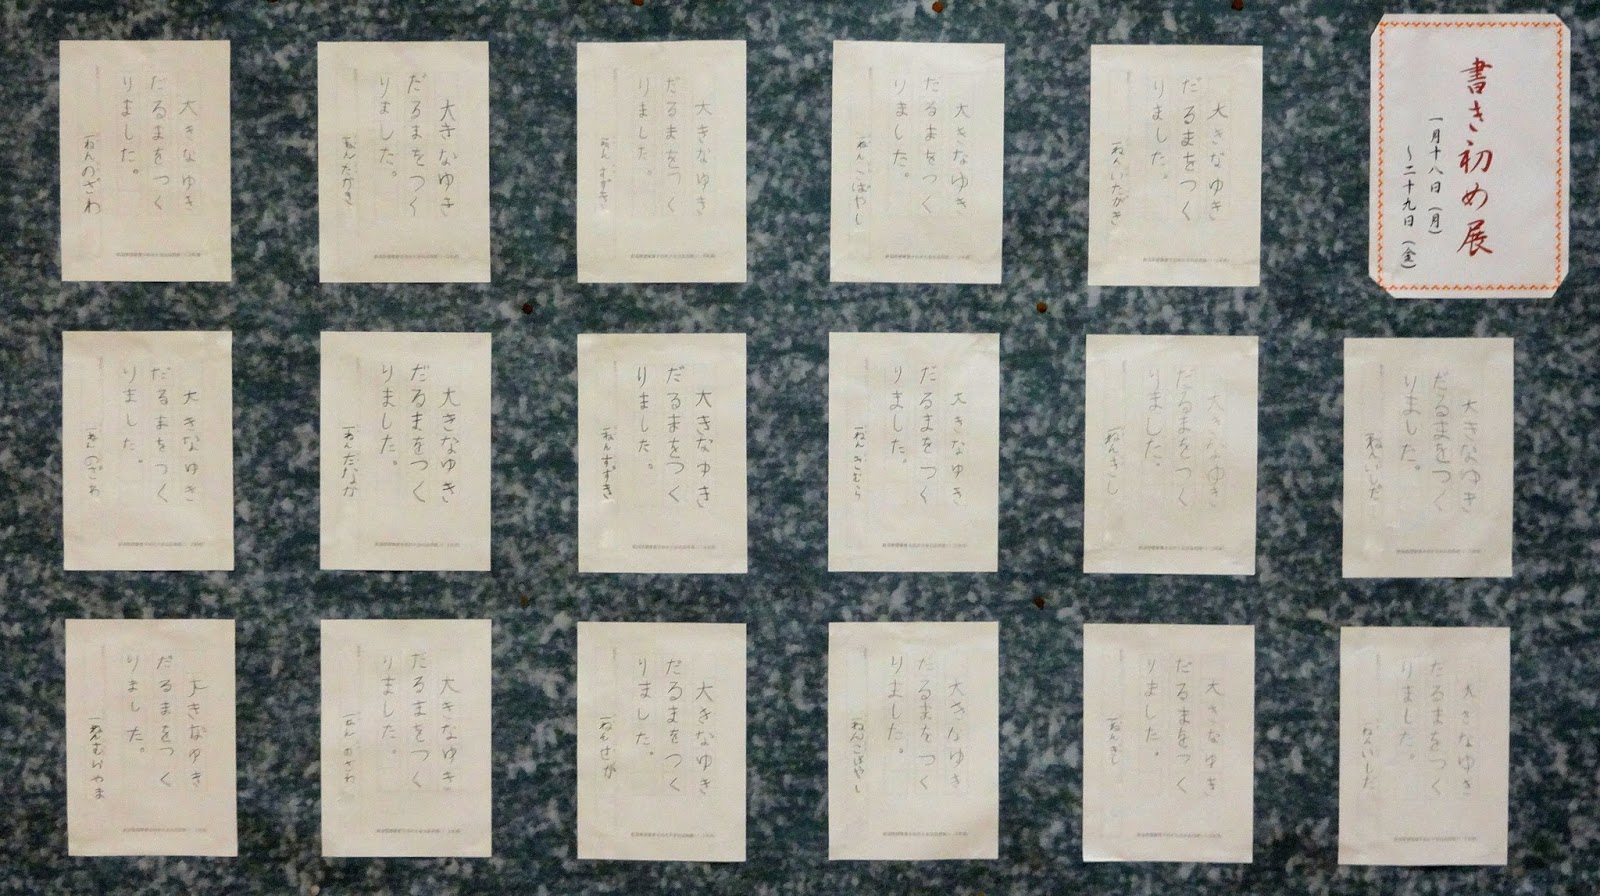 書き初め展
一月十八日(月)
～二十九日(金)
大きなゆき
だるまをつく
りました。
一ねんいたがき
大きなゆき
だるまをつく
りました。
一ねんこばやし
大きなゆき
だるまをつく
りました。
大きなゆき
だるまをつく
りました。
一ねんたかき
大きなゆき
だるまをつく
りました。
一ねんのざわ
大きなゆき
だるまをつく
りました。
一ねんいしだ
大きなゆき
だるまをつく
りました。
一ねんきし
大きなゆき
だるまをつく
りました。
一ねんきむら
大きなゆき
だるまをつく
りました。
一ねんすずき
大きなゆき
だるまをつく
りました。
一ねんたなか
大きなゆき
だるまをつく
りました。
一ねんのざわ
大きなゆき
だるまをつく
りました。
一ねんいしだ
大きなゆき
だるまをつく
りました。
一ねんきし
大きなゆき
だるまをつく
りました。
一ねんこばやし
大きなゆき
だるまをつく
りました。
一ねんせが
大きなゆき
だるまをつく
りました。
一ねんのざわ
大きなゆき
だるまをつく
りました。
一ねんむけやま